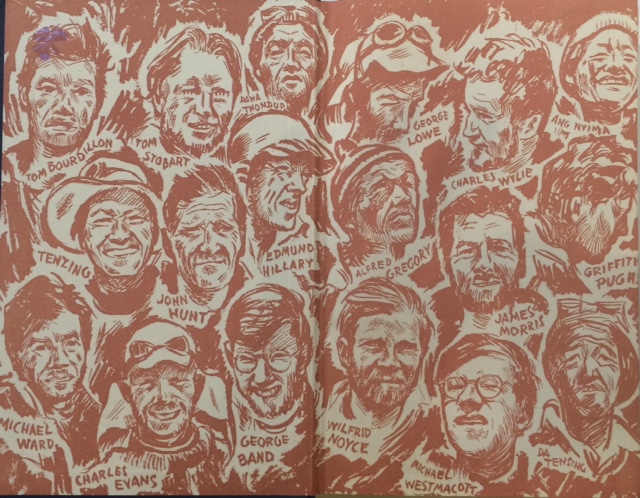 TOM BOURDILLON
TOM
STOBART
DAWA
THONDUP
GEORGE
LOWE
CHARLES WYLIE
ANG NYIMA
TENZING
JOHN
HUNT
EDMUND
HILLARY
ALFRED
GREGORY
JAMES
MORRIS
GRIFFITH
PUGH
MICHAEL
WARD
CHARLES
EVANS
GEORGE
BAND
WILFRID
NOYCE
MICHAEL
WESTMACOTT
DA
TENSING